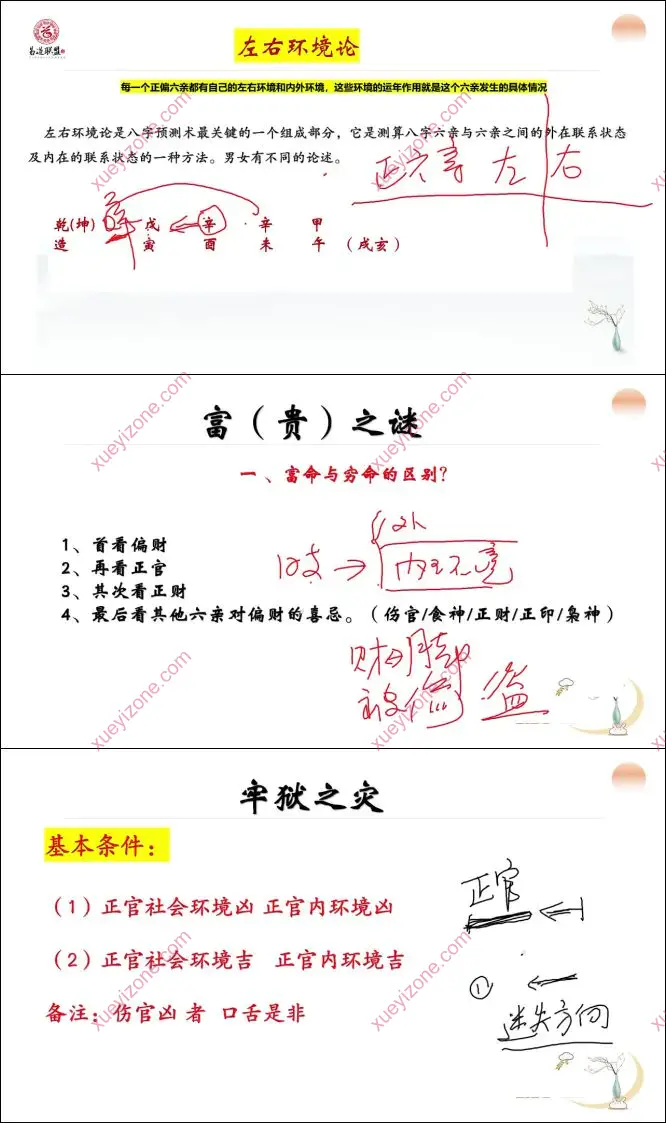 易道联盟
左右环境论
每一个正偏六亲都有自己的左右环境和内外环境，这些环境的运年作用就是这个六亲发生的具体情况
左右环境论是八字预测术最关键的一个组成部分，它是测算八字六亲与六亲之间的外在联系状态
及内在的联系状态的一种方法。男女有不同的论述。
正六亲 左 右
乾(坤) 戊 辛 辛 甲
造 寅 酉 未 午 (戌亥)
xueyizone.com
富（贵）之谜
一、富命与穷命的区别？
1、首看偏财
2、再看正官
3、其次看正财
4、最后看其他六亲对偏财的喜忌。（伤官/食神/正财/正印/枭神）
被偷 盗
xueyizone.com
xueyizone.com
牢狱之灾
基本条件：
（1）正官社会环境凶 正官内环境凶
（2）正官社会环境吉 正官内环境吉
备注：伤官凶者 口舌是非
正官
①
迷失方向
xueyizone.com
xueyizone.com